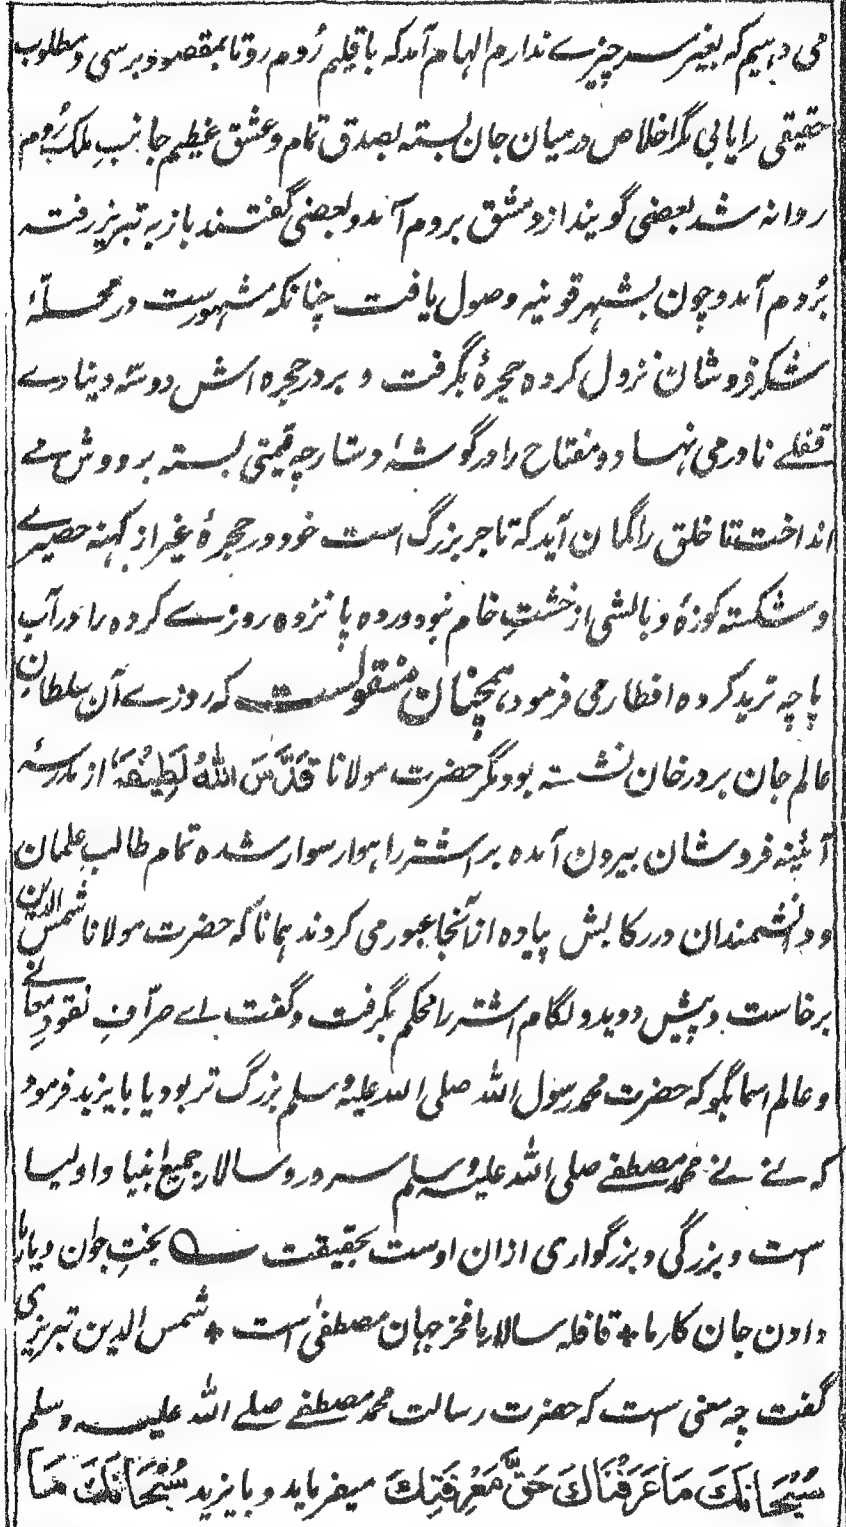 می دهیم که بغیر سر چیزے ندارم الهام آمد که باقلیم رُوم رو تا بمقصود برسی و مطلوب
حقیقی را یابی مگر اخلاص در میان جان بسته بصدق تمام و عشق عظیم جانبِ ملک رُوم
روانه شد بعضی گویند از دمشق بروم آمد و بعضی گفتند باز به تبریز رفته
بُروم آمد و چون بشهر قونیه وصول یافت چنانکه مشهورست در محلهٔ
شکر فروشان نزول کرده حجرهٔ بگرفت و بر در حجره اش دو سه دینارے
قفلے نادر می نهاد و مفتاح را در گوشهٔ دستارچه قیمتی بسته بر دوش مے
انداخت تا خلق را گمان آید که تاجر بزرگ است خود در حجرهٔ غیر از کهنه حصیرے
و شکسته کوزهٔ و بالشی از خشتِ خام نبود در ده پانزده روزے کرده را در آب
پاچه ترید کرده افطار می فرمود، همچنان منقولست که روزے آن سلطانِ
عالم جان بر در خان نشسته بود مگر حضرت مولانا قَدَّسَ اللهُ لَطِیْفَهٗ از مدرسهٔ
آئینه فروشان بیرون آمده بر اشتر راهوار سوار شده تمام طالب علمان
و دانشمندان در رکابش پیاده از آنجا عبور می کردند همانا که حضرت مولانا شمس الدین
برخاست و پیش دوید و لگام اشتر را محکم بگرفت و گفت اے صرّافِ نقودِ معانے
و عالم اسما بگو که حضرت محمد رسول الله صلی الله علیه و سلم بزرگ تر بود یا بایزید فرمود
که نے نے محمد مصطفے صلی الله علیه و سلم سرور و سالار جمیع انبیا و اولیا
است و بزرگی و بزرگواری ازان اوست بحقیقت بخت جوان و یار ما
دادن جان کار ما * قافله سالار ما فخر جهان مصطفیٰ است * شمس الدین تبریزی
گفت چه معنی است که حضرت رسالت محمد مصطفے صلے الله علیه و سلم
سُبْحَانَكَ مَا عَرَفْنَاكَ حَقَّ مَعْرِفَتِكَ میفرماید و بایزید سُبْحَانَكَ مَا